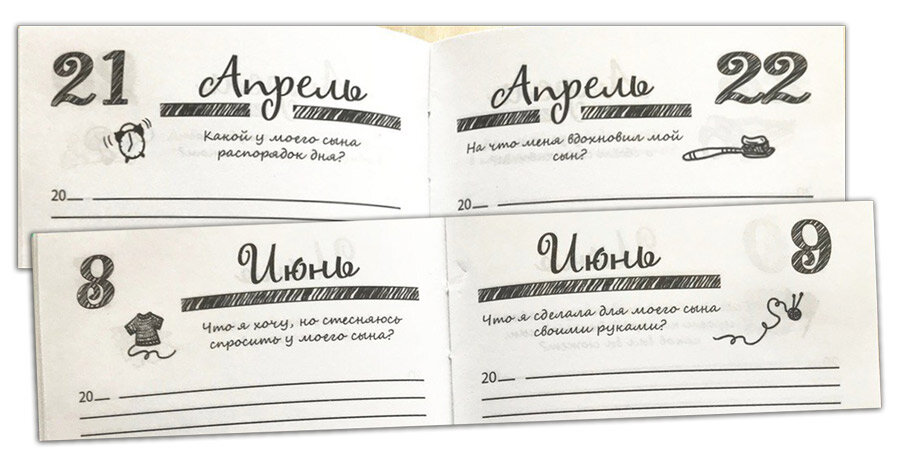 21
Апрель
Какой у моего сына
распорядок дня?
20__
Апрель
22
На что меня вдохновил мой
сын?
20__
8
Июнь
Что я хочу, но стесняюсь
спросить у моего сына?
20__
Июнь
9
Что я сделала для моего сына
своими руками?
20__